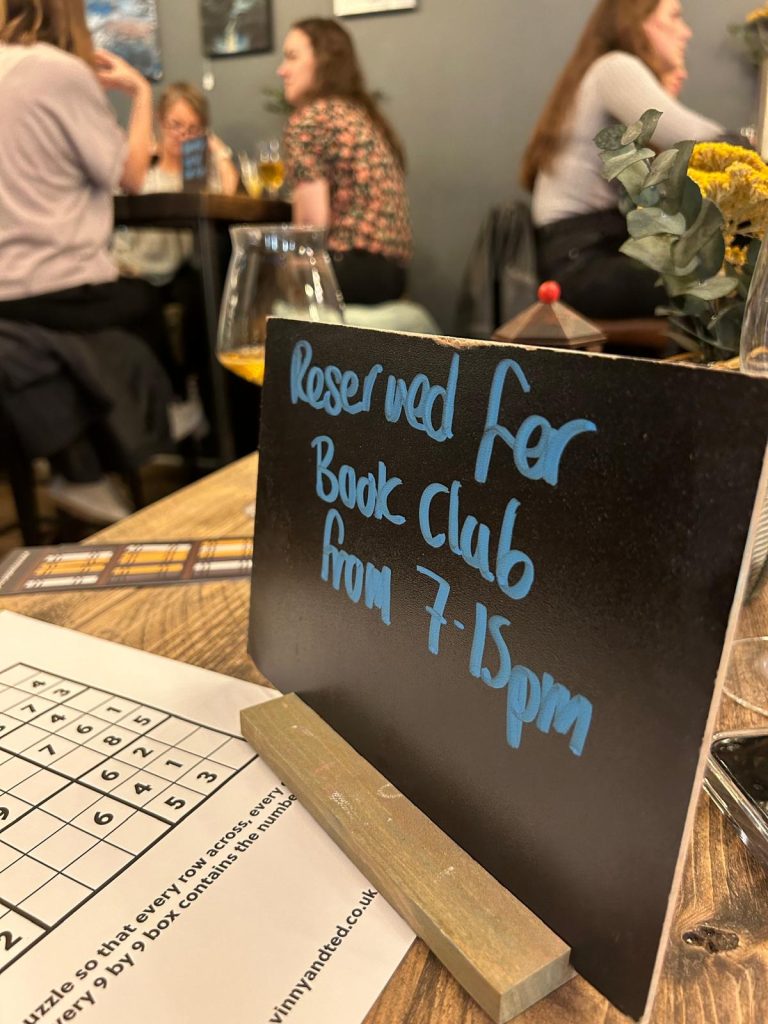 Reserved for
Book Club
from 7-15pm
4
7 3
4
7 6 1
8 5
6 2
9
6 4 1
2 5 3
so that every row across, every
9 by 9 box contains the
vinnyandted.co.uk